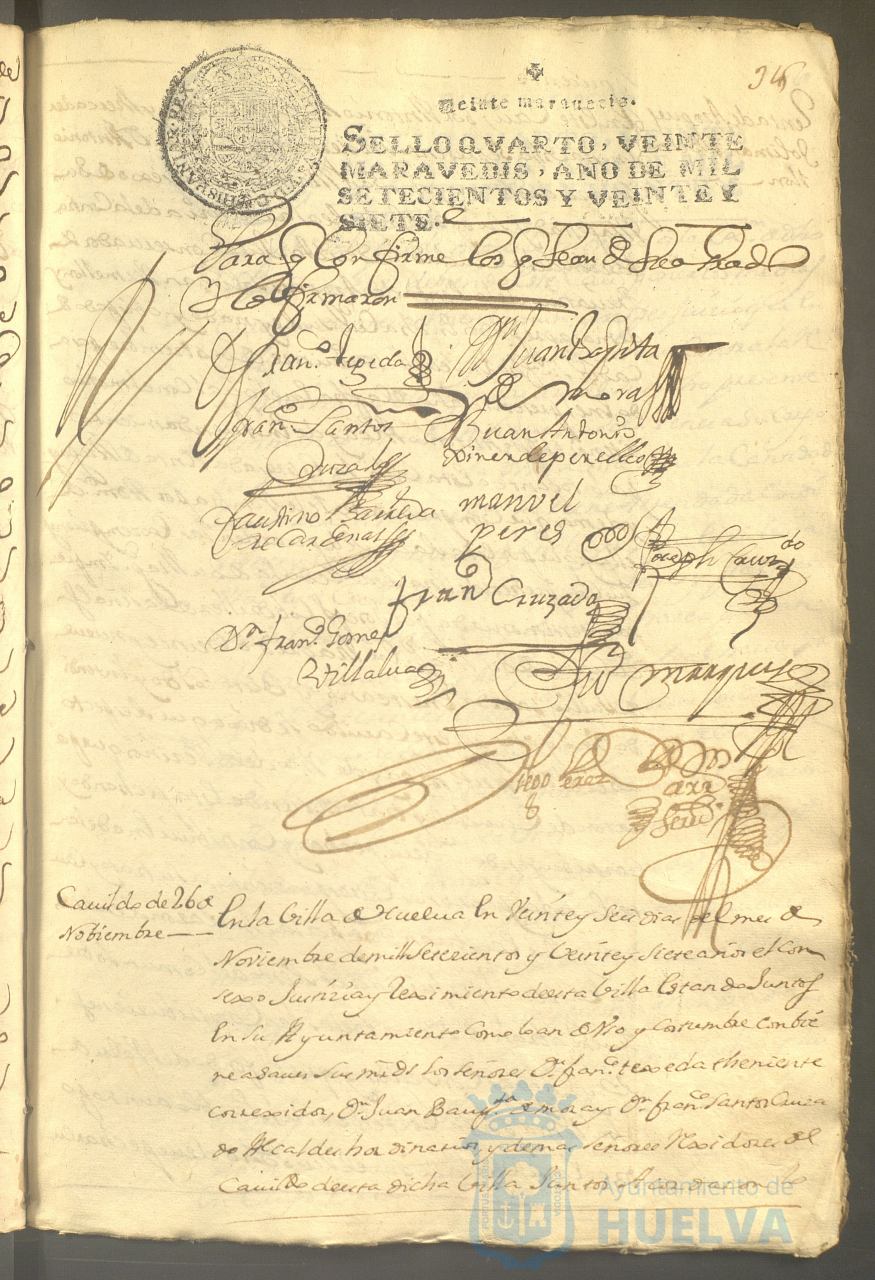 346
Veinte maravedis.
SELLO QVARTO, VEINTE
MARAVEDIS, AÑO DE MIL
SETECIENTOS Y VEINTE Y
SIETE.
Para q Conſirme los
lo firmaron
Fran.co texeda Dn Juan Bapta
de Mora
Fran.co Santos Juan Antonio
Cruzado
Faustino Barreda manuel
de Cardenas peres Joseph Cruzdo
Fran.co Cruzado
Dn Fran.co Gomes
Villalua marques
perez
Cauildo de 26 de
Nobiembre
En la Villa de Huelua En Veinte y Seis dias del mes de
Noviembre de mill Setezientos y Veinte y siete años el Con
sexo Justizia y Reximiento desta Villa Estando Juntos
En su Ayuntamiento Como lo an de Vso y Costumbre Conbie
ne a sauer Sus mrds los señores Dn fran.co texeda theniente
correxidor, Dn Juan Baupta de mora y Dn fran.co Santos Cruza
do Alcaldes hordinarios y demas señores Rexidores del
Cauildo desta dicha Villa Juntos
Ayuntamiento de
HUELVA